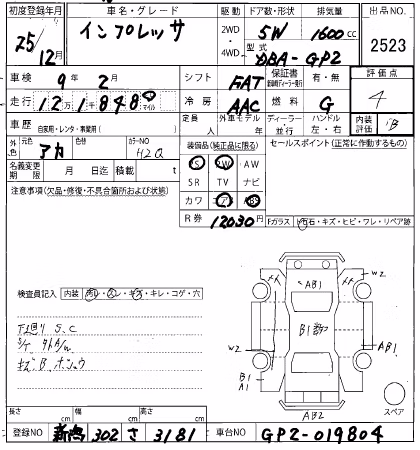 初度登録年月 車名・グレード 駆動 ドア数・形状 排気量 出品NO.
25/12月 インプレッサ 2WD・4WD 5W 1600cc 2523
型式 DBA-GP2
車検 9年2月 シフト FAT 保証書 有・無 評価点
走行 12万1千848 マイル 冷房 AAC 燃料 G 4
車歴 自家用・レンタ・事業用( ) 定員 人 外車モデル 年 ディーラー・並行 ハンドル 左・右 内装評価 B
外色 元色 アカ 色替 カラーNO H2Q 装備品(純正品に限る) セールスポイント(正常に作動するもの)
名義変更期限 月 日迄 積載 t PS PW AW
SR TV ナビ
注意事項(欠品・修復・不具合箇所および状態) カワ エア ABS
R券 12030円
Fガラス ト石・キズ・ヒビ・ワレ・リペア跡
検査員記入 内装 汚レ・スレ・キズ・キレ・コゲ・穴
下廻り S.C
キズB
AB1
W2
B1
W2
AB1
B1
A1
AB2
スペア
長さ cm 幅 cm 高さ cm
登録NO 新潟 302 さ 3181 車台NO GP2-019804